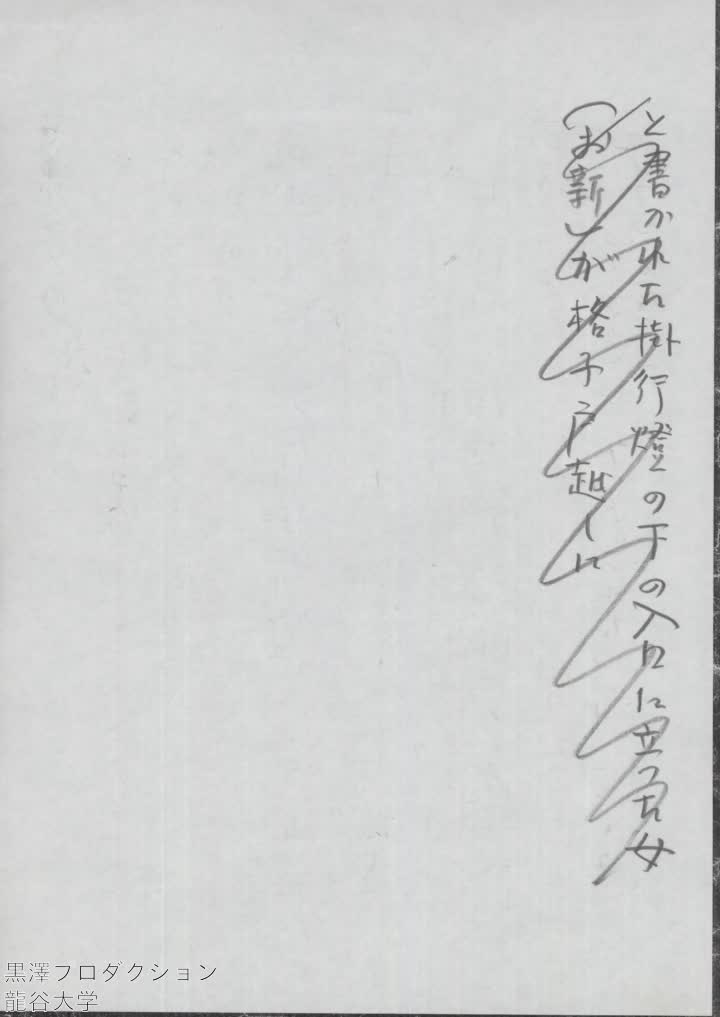 と書かれた掛行燈の下の入口に立った女
(お新)が格子戸越しに
黒澤プロダクション
龍谷大学